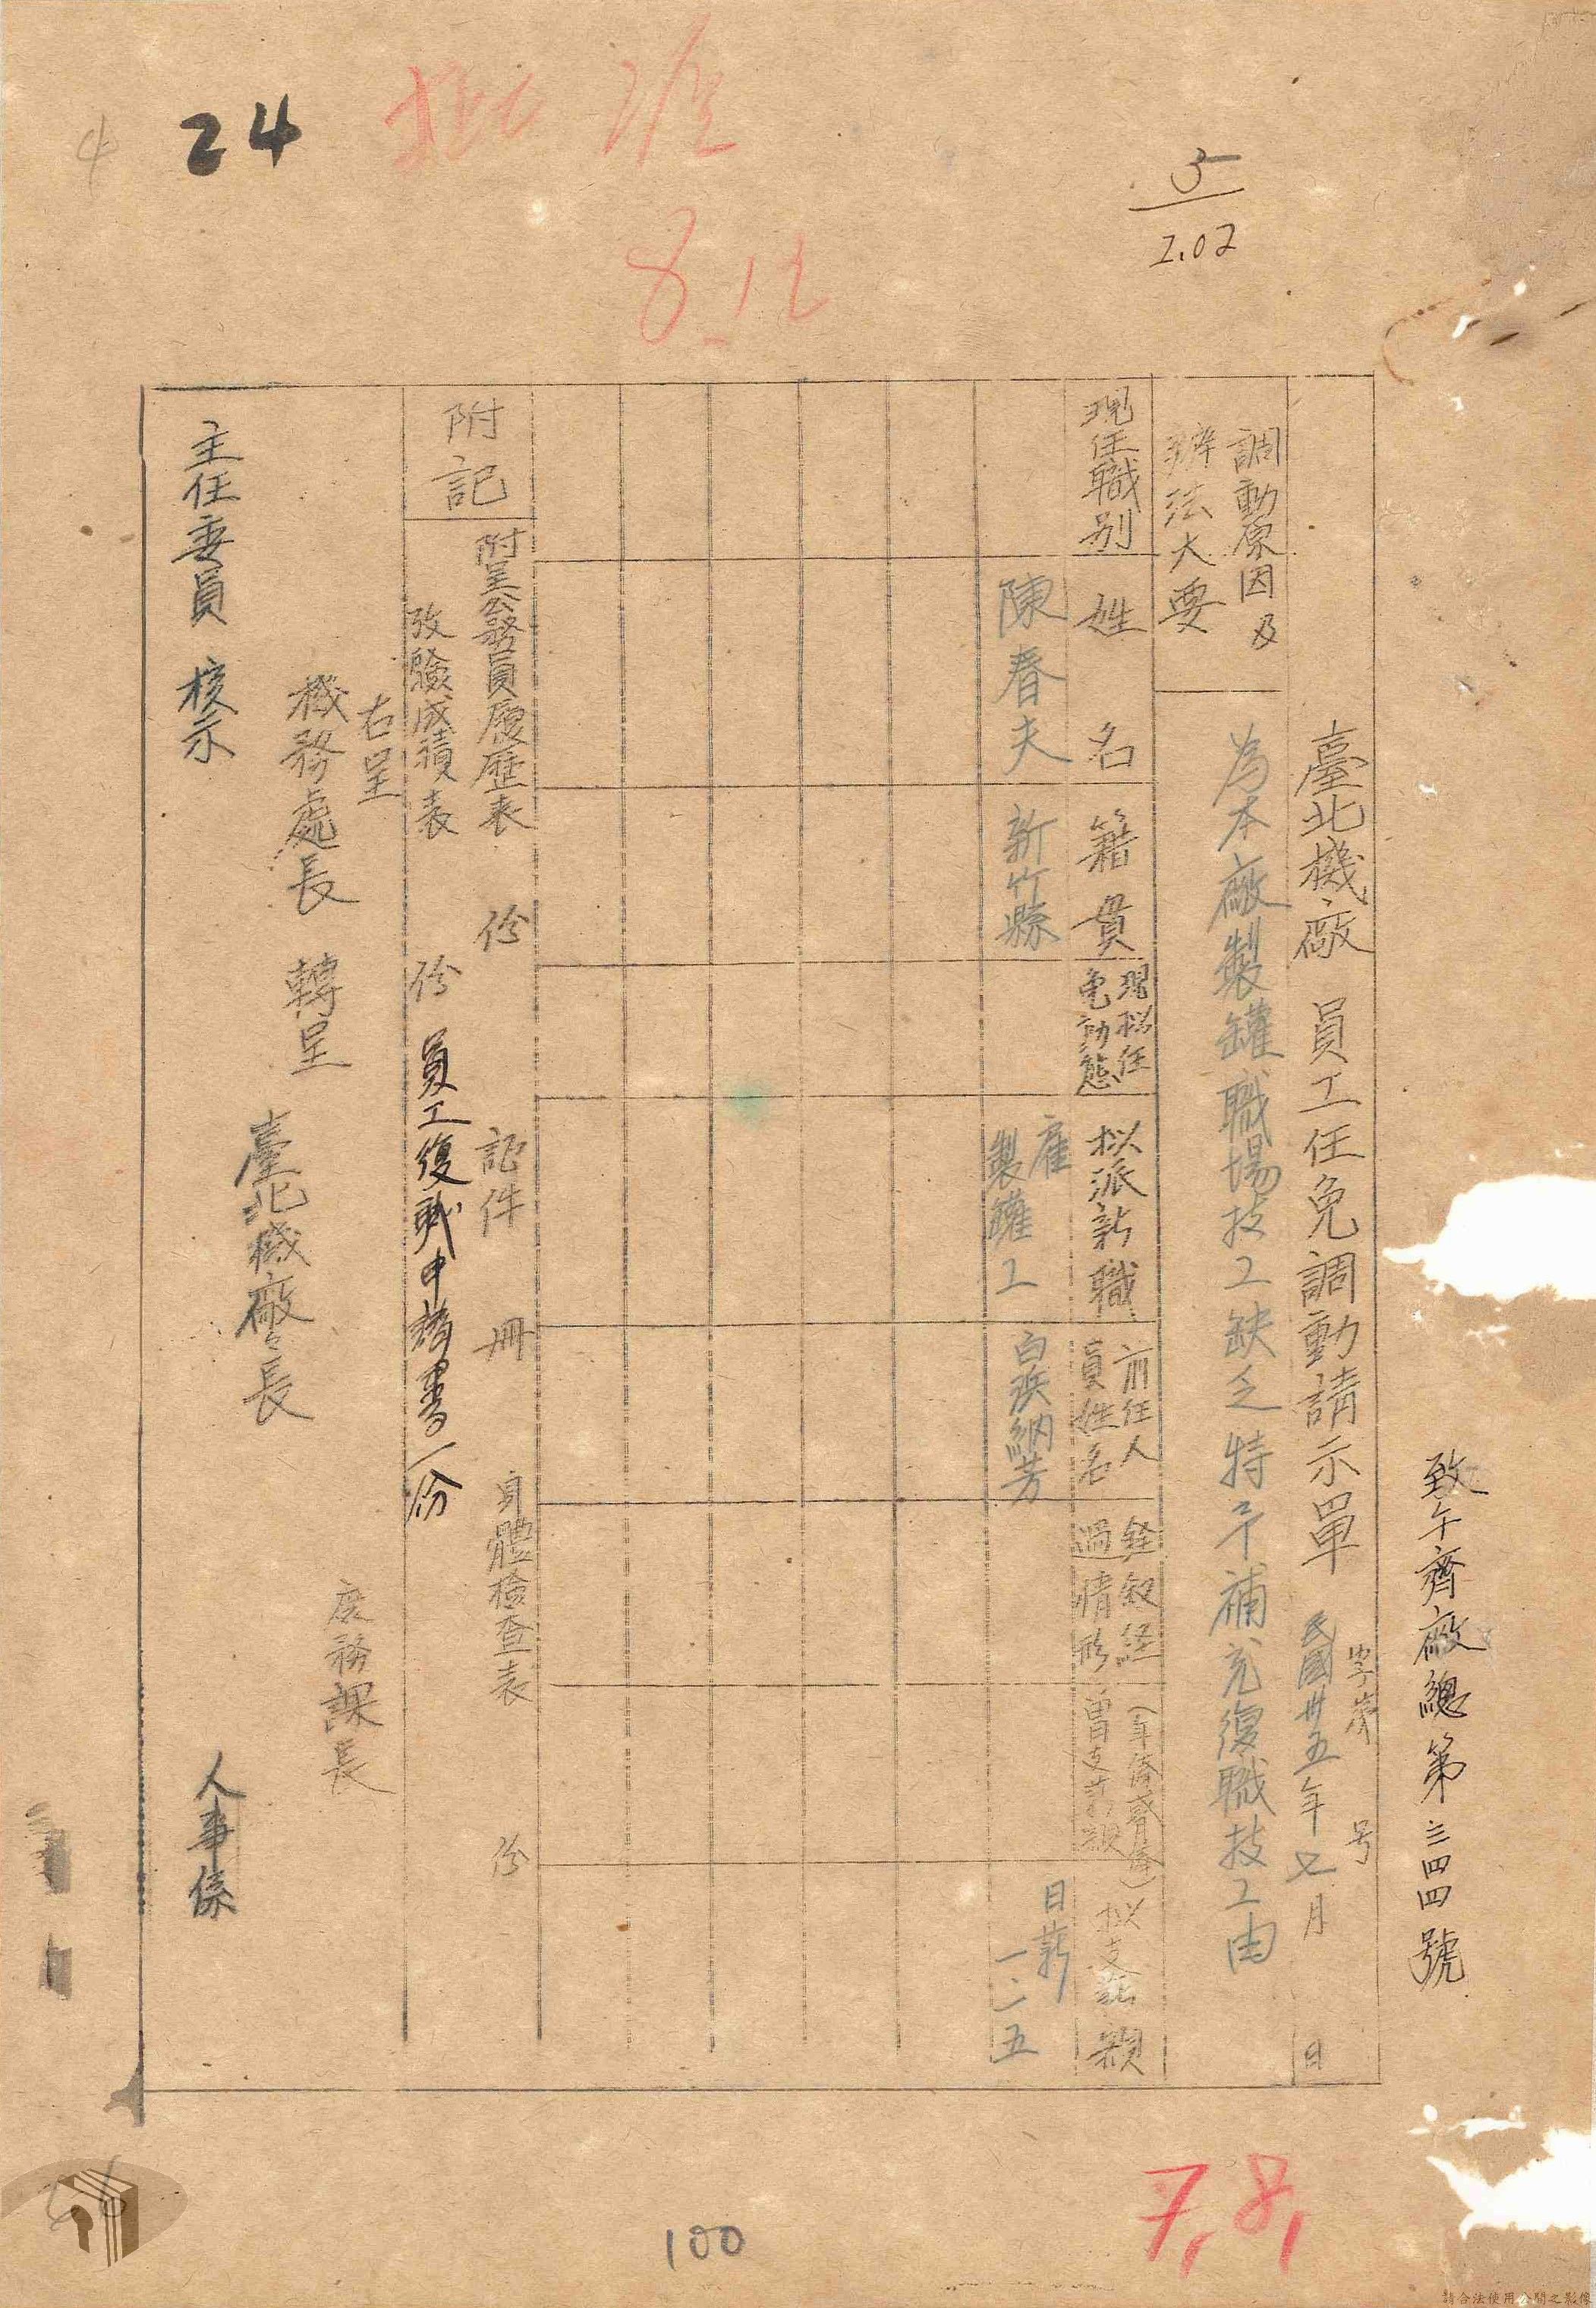 4
24
擬准
8.12
5
2.02
致午齊廠總第三四四號
臺北機廠 員工任免調動請示單
字第 号
民國卅五年七月 日
調動原因及
辦法大要
為本廠製罐職場技工缺乏特予補充復職技工由
現任職別
姓名
籍貫
現擬任
免動態
拟派新職
前任人
員姓名
銓敘経
過情形
(年俸或月俸)
曾支薪額
拟支薪額
陳春夫
新竹縣
雇
製罐工
白浜納芳
日薪
一.一五
附記
附呈公務員履歷表 份 証件 冊 身體檢查表 份
攷驗成績表 份 員工復職申請書一份
右呈
機務處長 轉呈
主任委員 核示
臺北機廠々長
庶務課長
人事係
7,8,
100
26
請合法使用公開之影像